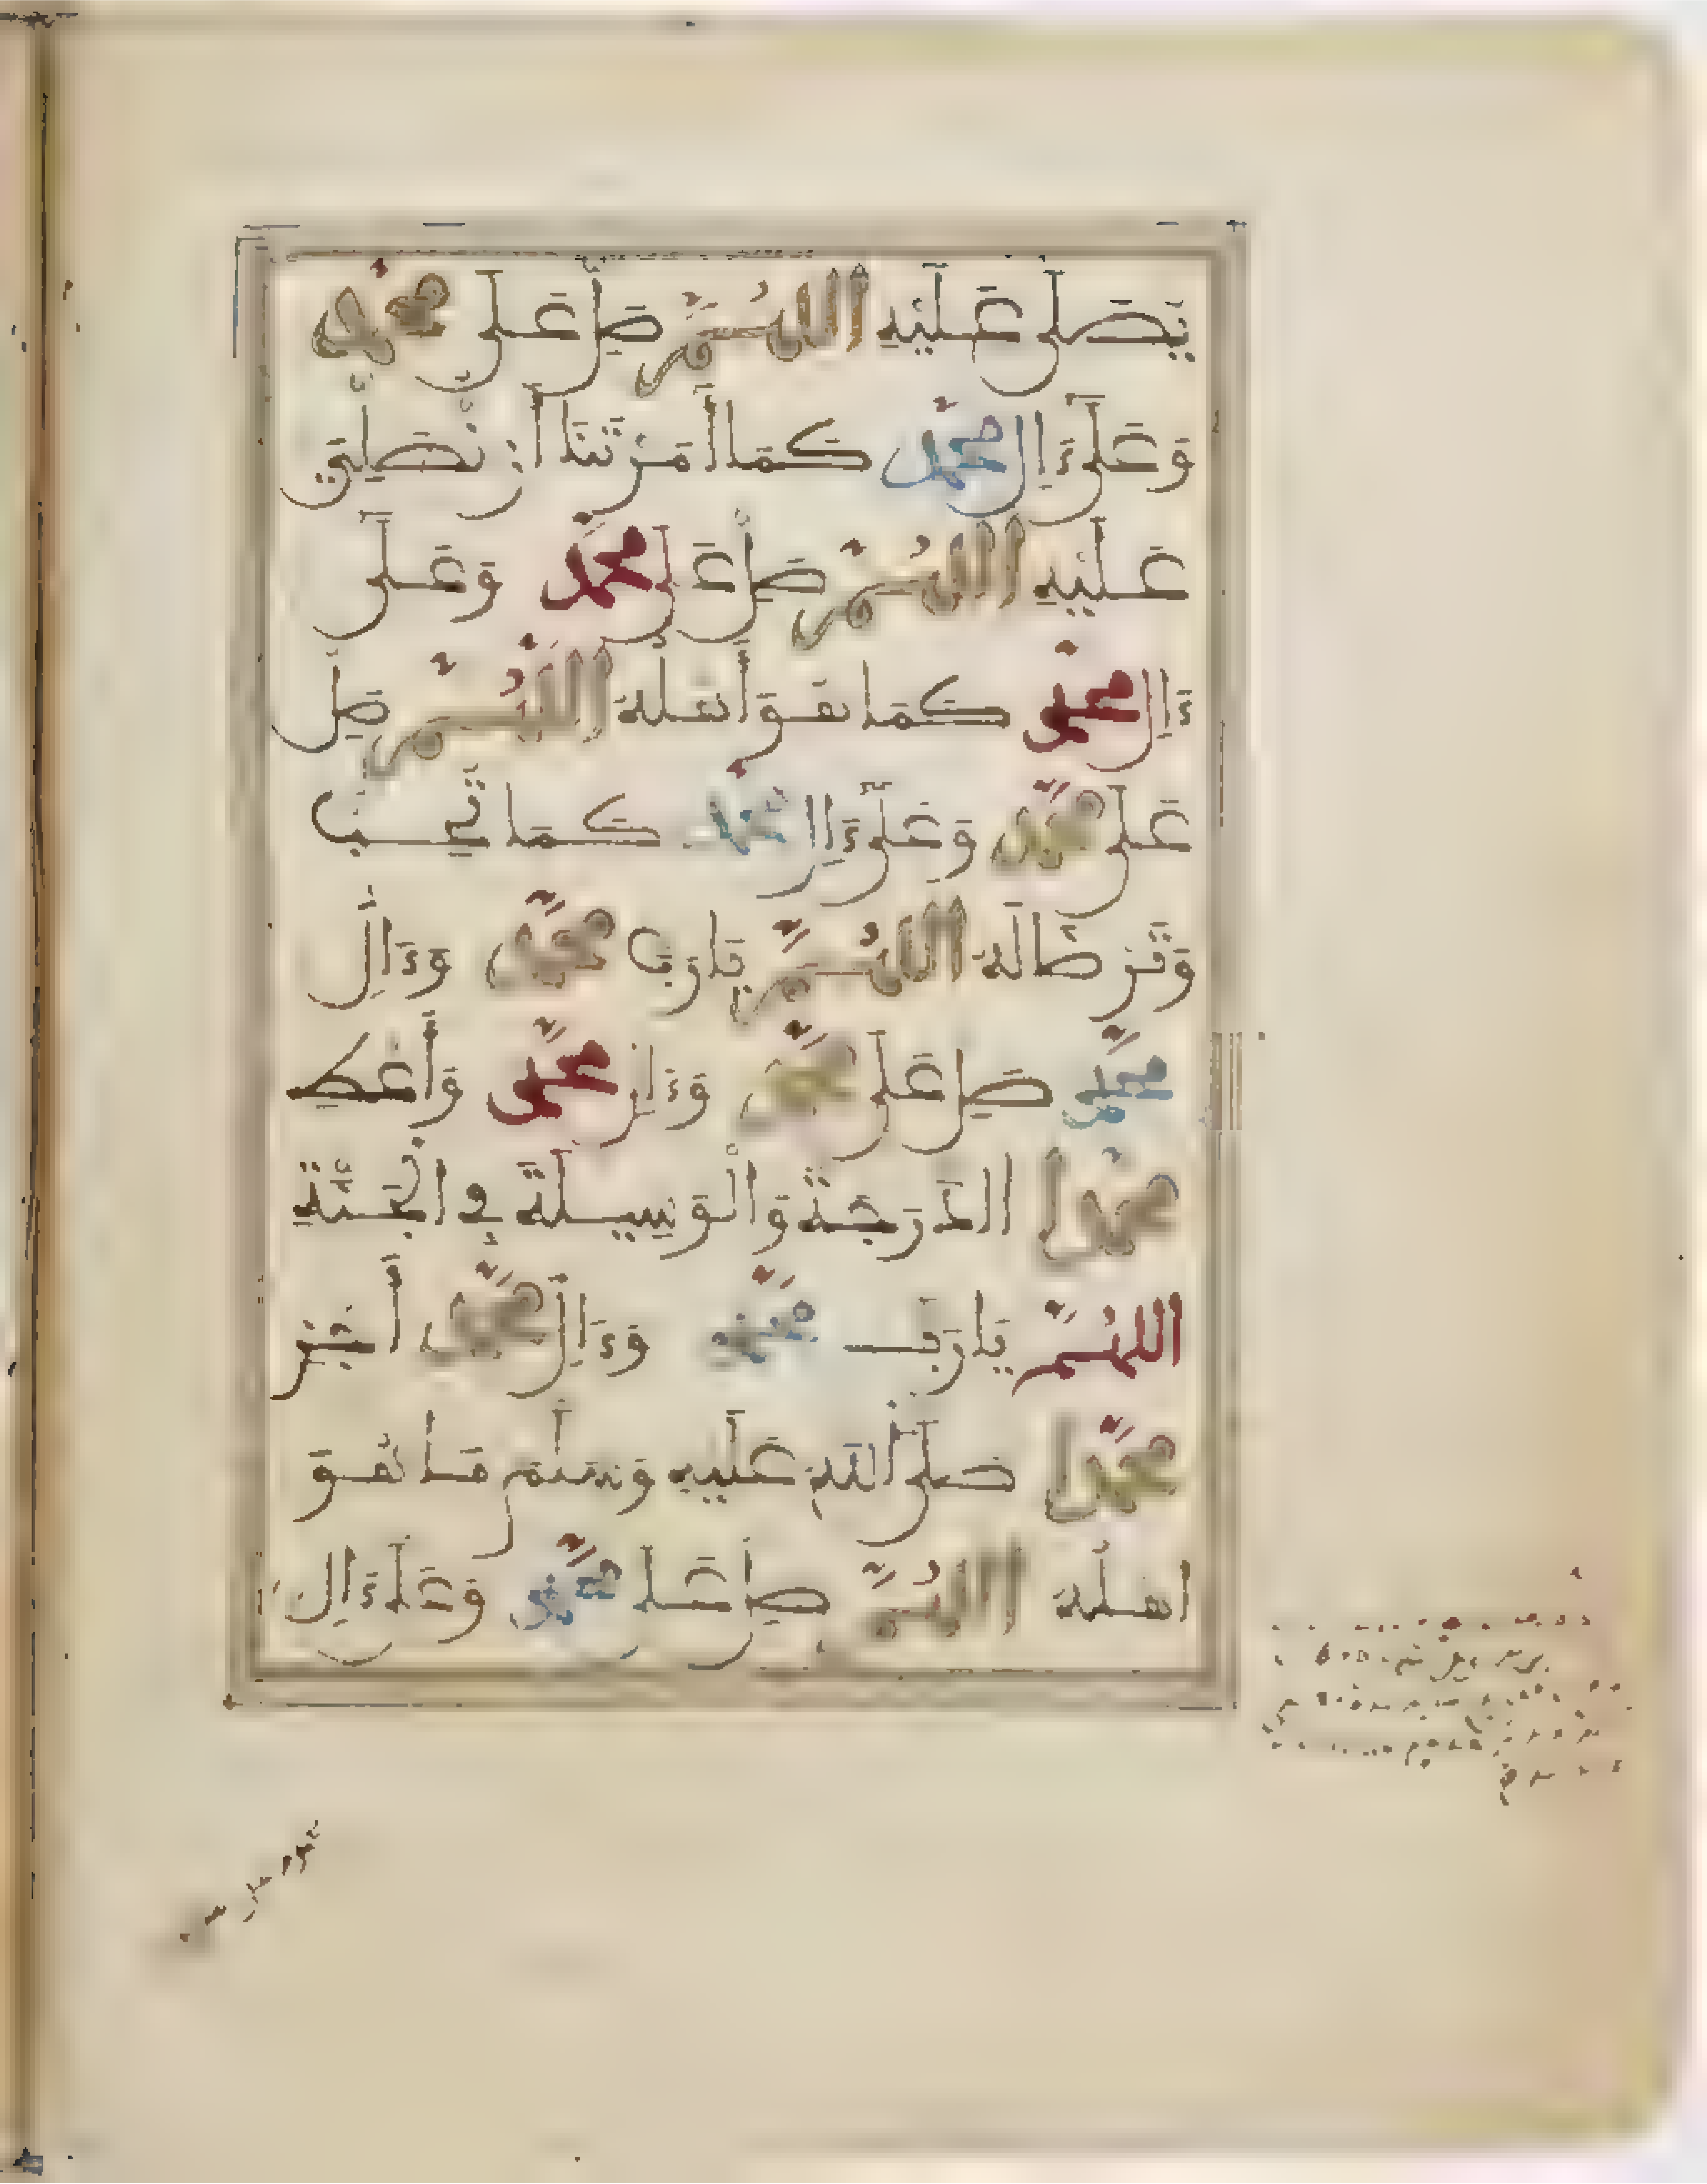 يُصَلَّى عَلَيْهِ اللهُمَّ صَلِّ عَلَى مُحَمَّدٍ
وَعَلَى ءَالِ مُحَمَّدٍ كَمَا أَمَرْتَنَا أَن نُّصَلِّيَ
عَلَيْهِ اللهُمَّ صَلِّ عَلَى مُحَمَّدٍ وَعَلَى
ءَالِ مُحَمَّدٍ كَمَا هُوَ أَهْلُهُ اللهُمَّ صَلِّ
عَلَى مُحَمَّدٍ وَعَلَى ءَالِ مُحَمَّدٍ كَمَا تُحِبُّ
وَتَرْضَاهُ لَهُ اللهُمَّ يَا رَبَّ مُحَمَّدٍ وَءَالِ
مُحَمَّدٍ صَلِّ عَلَى مُحَمَّدٍ وَءَالِ مُحَمَّدٍ وَأَعْطِ
مُحَمَّدًا الدَّرَجَةَ وَالْوَسِيلَةَ فِي الْجَنَّةِ
اللهُمَّ يَا رَبَّ مُحَمَّدٍ وَءَالِ مُحَمَّدٍ أَجْزِ
مُحَمَّدًا صَلَّى اللهُ عَلَيْهِ وَسَلَّمَ مَا هُوَ
أَهْلُهُ اللهُمَّ صَلِّ عَلَى مُحَمَّدٍ وَعَلَى ءَالِ